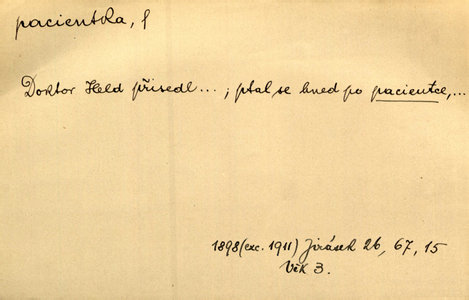 pacientka, f
Doktor Held přisedl...; ptal se hned po pacientce,...
1898 (exc. 1911) Jirásek 26, 67, 15
Věk 3.